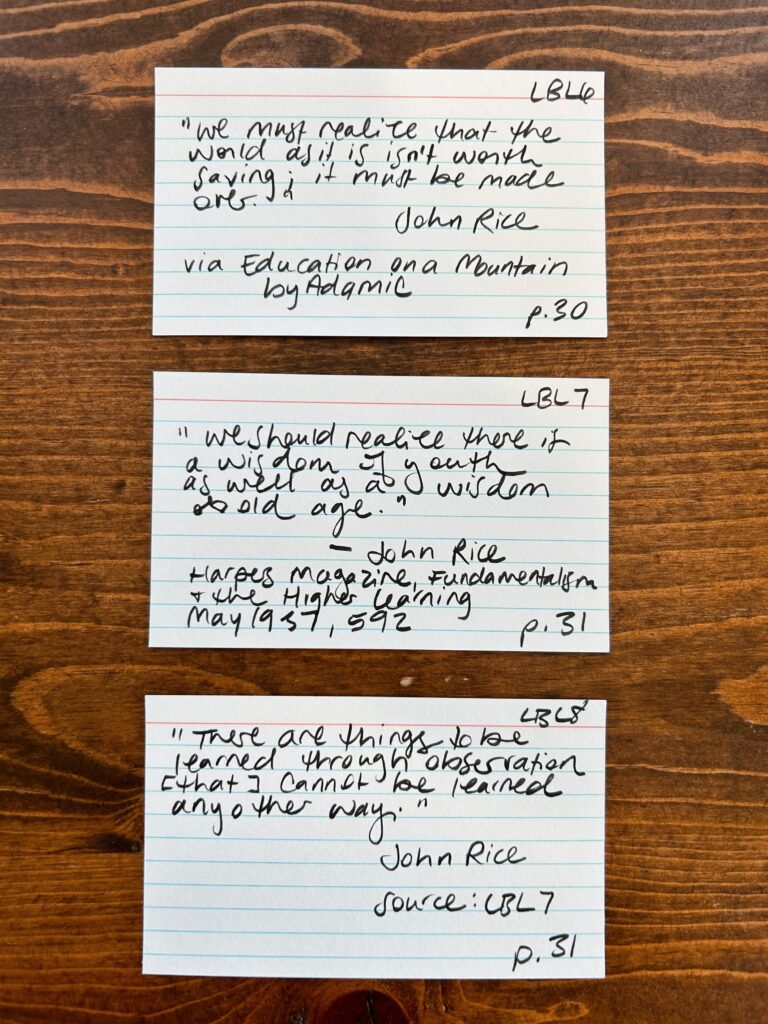 LBL6
"we must realize that the
world as it is isn't worth
saving; it must be made
over."
John Rice
via Education on a Mountain
by Adamic
p.30
LBL7
"we should realize there is
a wisdom of youth
as well as a wisdom
old age."
— John Rice
Harpers Magazine, Fundamentalism
+ the Higher Learning
May 1937, 592
p.31
LBL8
"There are things to be
learned through observation
[that] cannot be learned
any other way."
John Rice
source: LBL7
p.31